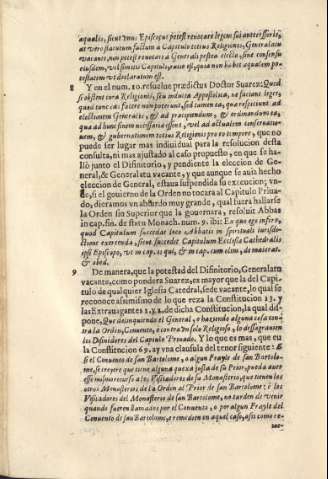 æqualis, sicut unus Episcopus potest revocare legem sui antecessoris,
at verò statutum factum à Capitulo totius Religionis, Generalatu
vacante, non potest revocari à Generali postea electo, sine consensu
eiusdem, vel similis Capituli, quia non habet æqualem po-
testatem vt declaratum est.
8 Y en el num. 10. resuelve prædictus Doctor Suarez: Quod
si obstent iura Religionis, seu inducta Appostolica, ne faciant leges,
quod tunc eas facere non poterunt, sed tamen ea, quæ respiciunt ad
electionem Generalis, & ad præcipiendum, & ordinandum ea,
quæ ad hunc finem necessaria essent, vel ad actualem conservatio-
nem, & gubernationem totius Religionis pro eo tempore, que no
puede ser lugar mas individual para la resolucion desta
consulta, ni mas ajustado al caso propuesto, en que se ha-
llò junto el Difinitorio, y pendiente la eleccion de Gene-
ral, & Generalatu vacante, y que aunque se aya hecho
eleccion de General, estaua suspendida su execucion, vn-
de, si el govierno de la Orden no tocara al Capitulo Priua-
do, dieramos vn absurdo muy grande, qual fuera hallarse
la Orden sin Superior que la governara, resolvit Abbas
in cap. fin. de statu Monach. num. 9. ibi: Ex quo ego infero,
quod Capitulum succedat loco Abbatis in spirituali iurisdi-
ctione exercenda, sicut succedit Capitulum Ecclesiæ Cathedralis
ipsi Episcopo, vt in cap. his qui, & cap. cum olim, de maiorat.
& obed.
9 De manera, que la potestad del Difinitorio, Generalatu
vacante, como pondera Suarez, es mayor que la del Capi-
tulo de qualquier Iglesia Catedral, sede vacante, lo qual se
reconoce asimismo de lo que reza la Constitucion 13. y
las Extravagantes 1. y 2. de dicha Constitucion, la qual dis-
pone, Que delinquiendo el General, ò haziendo alguna cosa con-
tra la Orden, Convento, ò contra vn solo Religioso, lo desagravien
los Difinidores del Capitulo Privado. Y lo que es mas, que en
la Constitucion 69. ay vna clausula del tenor siguiente: E
si el Convento de San Bartolomè, o algun Frayle de San Bartolo-
me, se creyere que tiene alguna quexa justa de su Prior, pueda aver
esse mismo recurso a los Visitadores de su Monasterio, que tienen los
otros Monesterios de la Orden al Prior de San Bartolome: è los
Visitadores del Monasterio de San Bartolome, no tarden de venir
quando fueren llamados por el Convento, o por algun Frayle del
Convento de san Bartolome, e remedien en aquel caso, assi como re-